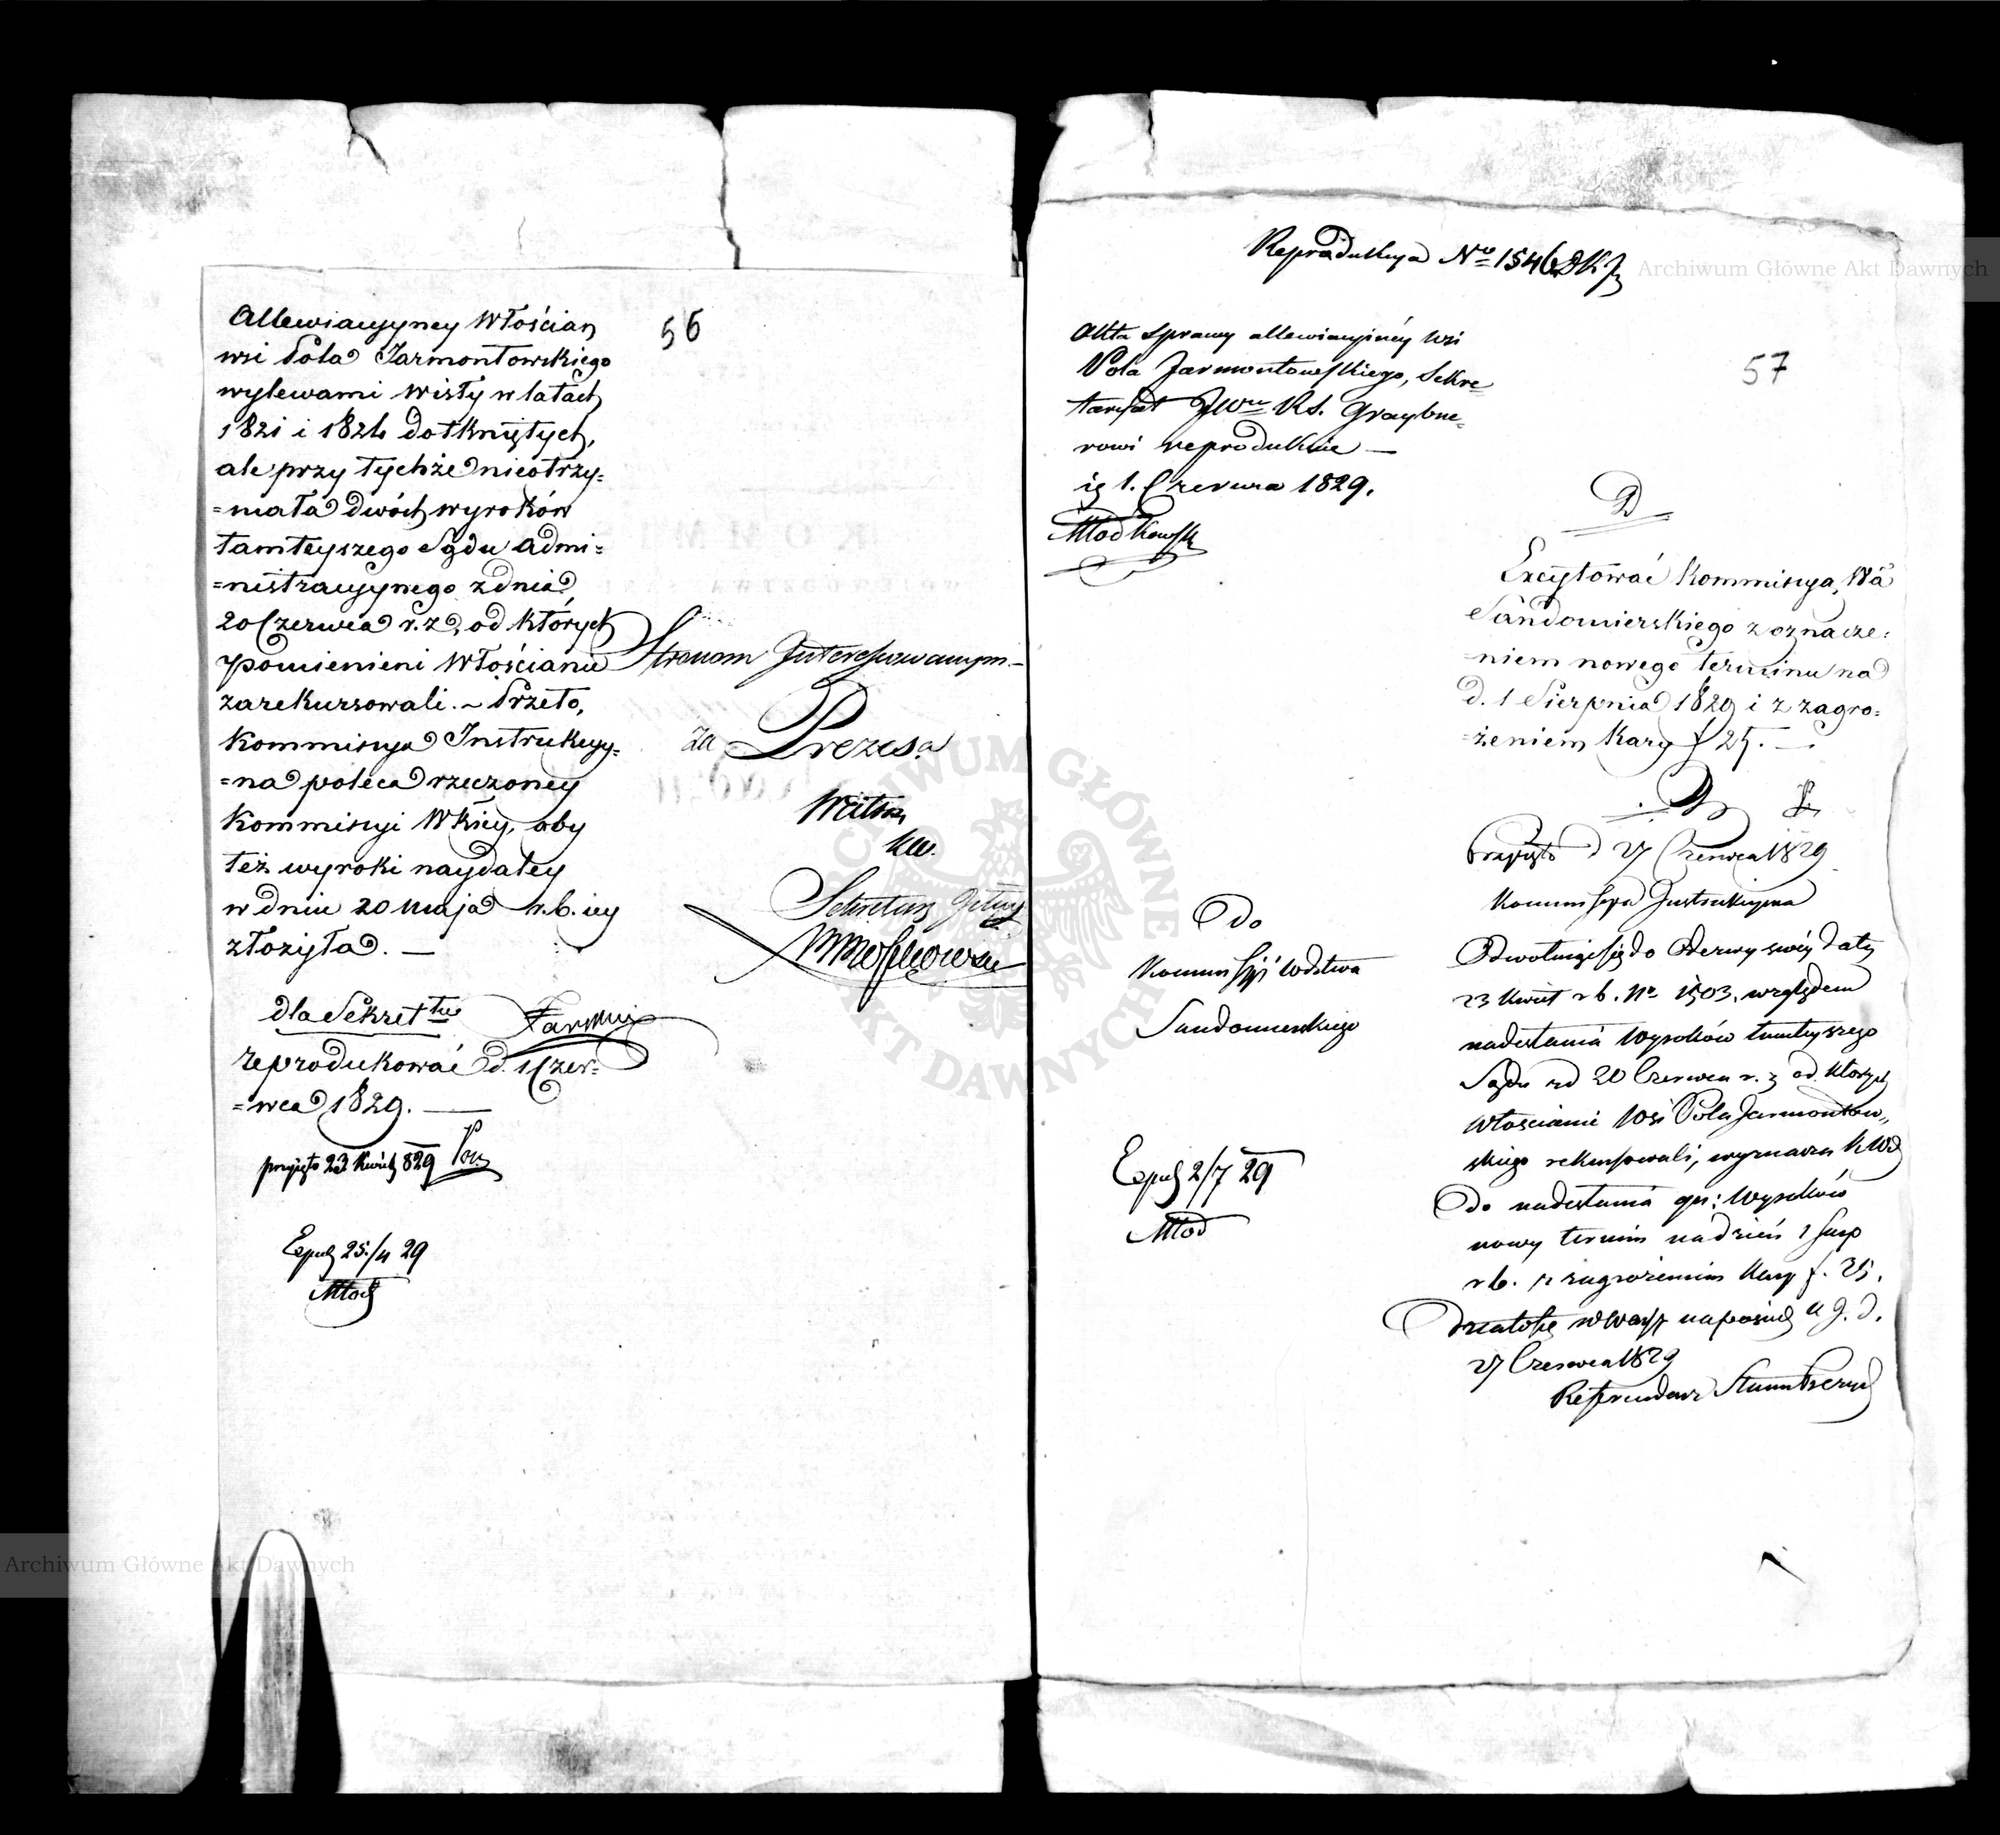 56
Allewiacyyney Włościan
wsi Pola Jarmontowskiego
wylewami Wisły w latach
1821 i 1824 dotkniętych,
ale przy tychże nieotrzy=
=mała dwóch wyroków
tamteyszego Sądu Admi=
=nistracyynego z dnia
20 Czerwca r. z., od których
pomienieni Włościanie
zarekursowali. ~ Przeto,
Kommissya Instrukcyy=
=na poleca rzeczoney
Kommissyi Wkiey, aby
też wyroki naydaley
w dniu 20 maja r. b. iey
złożyła. —
dla Sekret
reprodukować d. 1 Czer=
=wca 1829. —
przyjęto 23 Kwiet 829
Exped 25/4 29
Młod
Stronom Interessowanym
Za Prezesa
Sekretarz
57
Reprodukcya No 1546
Akta Sprawy allewiacyiney wsi
Pola Jarmontowskiego, Sekre=
taryat JWu RS. Graybne=
rowi reprodukuie —
1. Czerwca 1829.
Młodkowski
D
Excytować Kommissya Wa
Sandomierskiego z oznacze=
=niem nowego terminu na
d. 1 Sierpnia 1829 i z zagro=
=żeniem Kary f 25. —
Przyjęto d 27 Czerwca 1829
Kommissya Instrukcyina
Odwołuiąc się do Odezwy swéy daty
23 Kwiet r b. Nr 1503. względem
nadesłania Wyroków tamteyszego
Sądu z d 20 Czerwca r. z od których
Włościanie Wsi Pola Jarmontow=
skiego rekursowali, wyznacza KWd
Do nadesłania Wyroków
nowy termin na dzień 1 Sierp
r b. z zagrożeniem Kary f. 25.
Działo się w Warsz na posied
27 Czerwca 1829
Referendarz
Do
Kommissyi Wodztwa
Sandomierskiego
Exped 2/7 29
Młod
Archiwum Główne Akt Dawnych
Archiwum Główne Akt Dawnych
ARCHIWUM GŁÓWNE AKT DAWNYCH